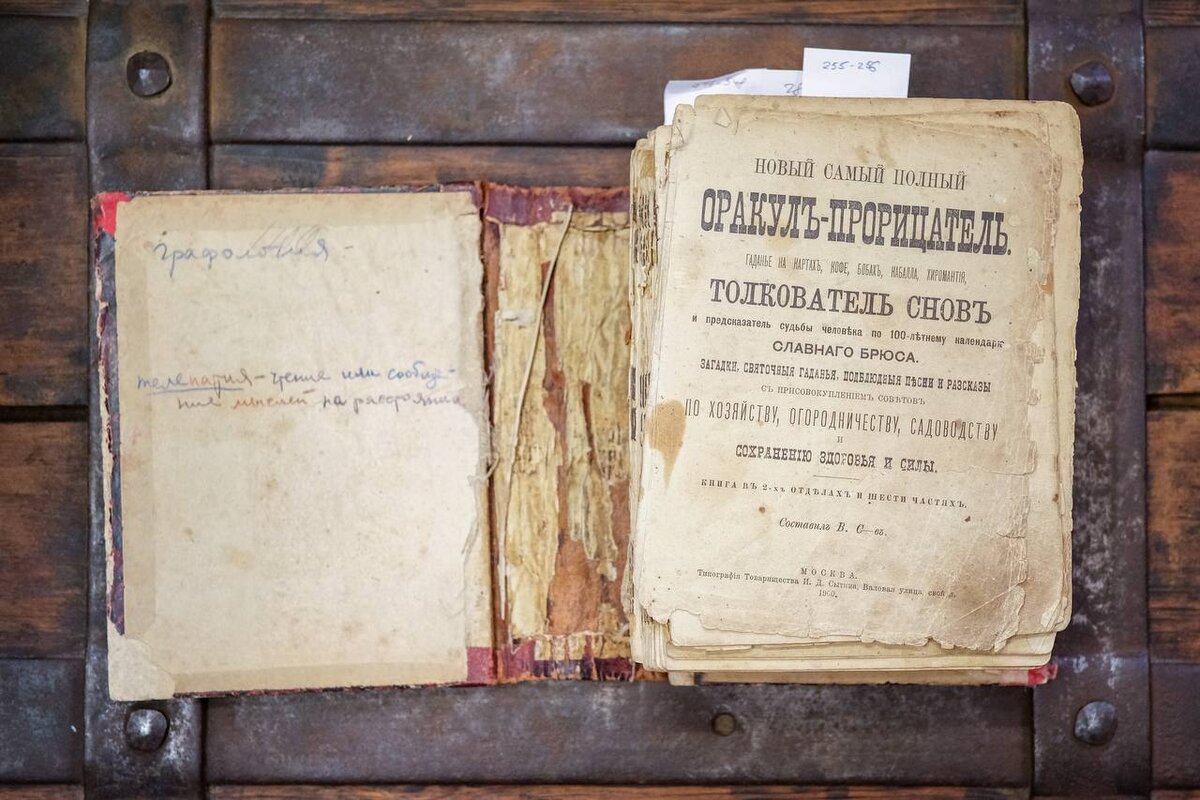 255-256
графология -
телепатия - чтение или сообще-
ние мыслей на расстояние
НОВЫЙ САМЫЙ ПОЛНЫЙ
ОРАКУЛЪ-ПРОРИЦАТЕЛЬ.
ГАДАНЬЕ НА КАРТАХЪ, КОФЕ, БОБАХЪ, КАБАЛЛА, ХИРОМАНТІЯ,
ТОЛКОВАТЕЛЬ СНОВЪ
и предсказатель судьбы человѣка по 100-лѣтному календарю
СЛАВНАГО БРЮСА.
ЗАГАДКИ, СВЯТОЧНЫЯ ГАДАНЬЯ, ПОДБЛЮДНЫЯ ПѢСНИ И РАЗСКАЗЫ
СЪ ПРИСОВОКУПЛЕНІЕМЪ СОВѢТОВЪ
ПО ХОЗЯЙСТВУ, ОГОРОДНИЧЕСТВУ, САДОВОДСТВУ
И
СОХРАНЕНІЮ ЗДОРОВЬЯ И СИЛЫ.
КНИГА ВЪ 2-хъ ОТДѢЛАХЪ И ШЕСТИ ЧАСТЯХЪ.
Составилъ В. С—въ.
МОСКВА.
Типографія Товарищества И. Д. Сытина, Валовая улица, свой д.
1900.